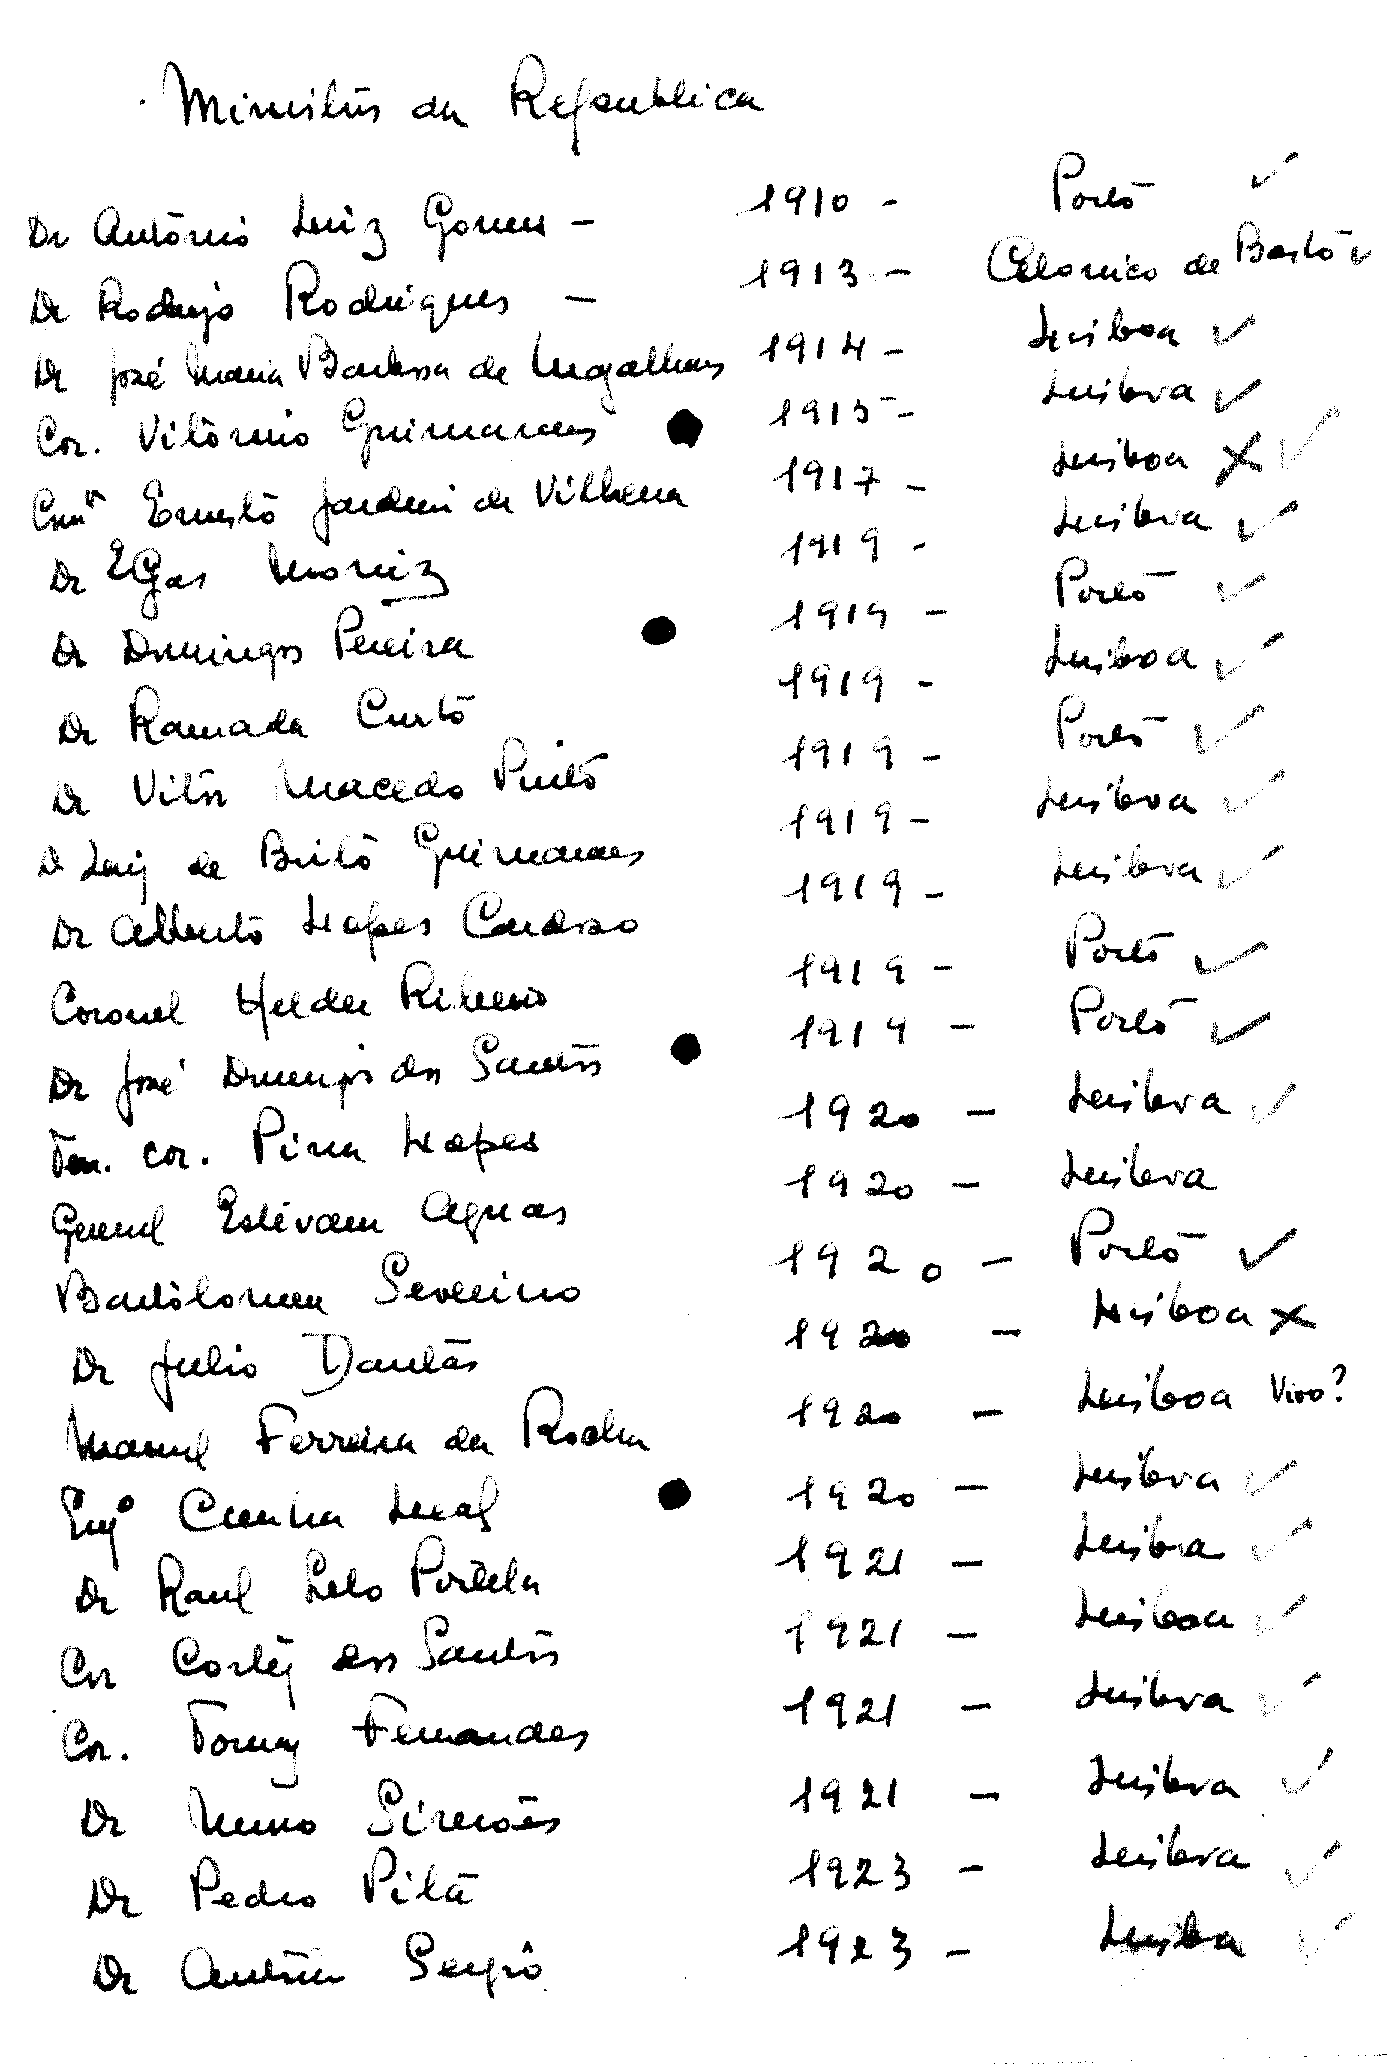 Ministros da Republica
Dr António Luiz Gomes - 1910 - Porto ✓
Dr Rodrigo Rodrigues - 1913 - Celorico de Basto ✓
Dr José Maria Barbosa de Magalhaes 1914 - Lisboa ✓
Cor. Vitorino Guimaraes ● 1915 - Lisboa ✓
Cmte Ernesto Jardim de Vilhena 1917 - Lisboa X ✓
Dr Egas Moniz 1919 - Lisboa ✓
Dr Domingos Pereira ● 1919 - Porto ✓
Dr Ramada Curto 1919 - Lisboa ✓
Dr Vitor Macedo Pinto 1919 - Porto ✓
Dr Luiz de Brito Guimaraes 1919 - Lisboa ✓
Dr Alberto Lopes Cardoso 1919 - Lisboa ✓
Coronel Helder Ribeiro 1919 - Porto ✓
Dr José Domingos dos Santos ● 1919 - Porto ✓
Ten. cor. Pina Lopes 1920 - Lisboa ✓
General Estevam Aguas 1920 - Lisboa
Bartolomeu Severino 1920 - Porto ✓
Dr Julio Dantas 1920 - Lisboa X
Manuel Ferreira da Rocha 1920 - Lisboa Vivo?
Engº Cunha Leal ● 1920 - Lisboa ✓
Dr Raul Lelo Portela 1921 - Lisboa ✓
Cor Cortêz dos Santos 1921 - Lisboa ✓
Cor. Tomaz Fernandes 1921 - Lisboa ✓
Dr Nuno Simões 1921 - Lisboa ✓
Dr Pedro Pita 1923 - Lisboa ✓
Dr António Sergio 1923 - Lisboa ✓